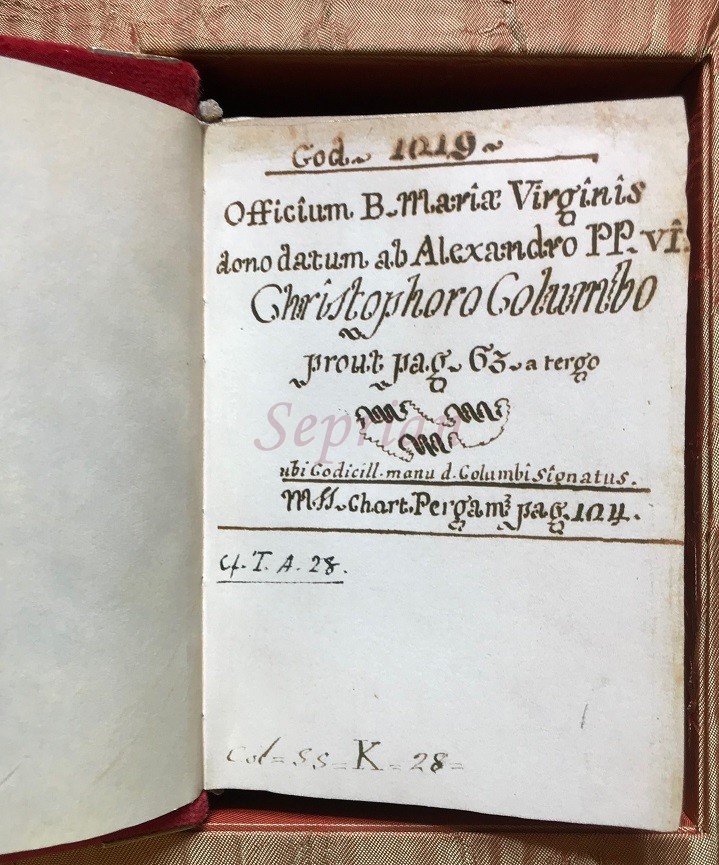 Cod. 1019
Officium B. Mariæ Virginis
dono datum ab Alexandro PP. VI.
Christophoro Columbo
prout pag. 63. a tergo
Seprian
ubi Codicill. manu d. Columbi signatus.
MSS. Chart. Pergam. pag. 124.
Cf. T. A. 28.
Col = SS = K = 28 =